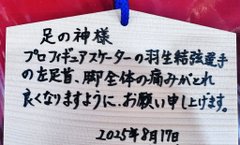 足の神様
プロフィギュアスケーターの羽生結弦選手
の左足首、脚全体の痛みがとれ
良くなりますように、お願い申し上げます。
2025年8月17日